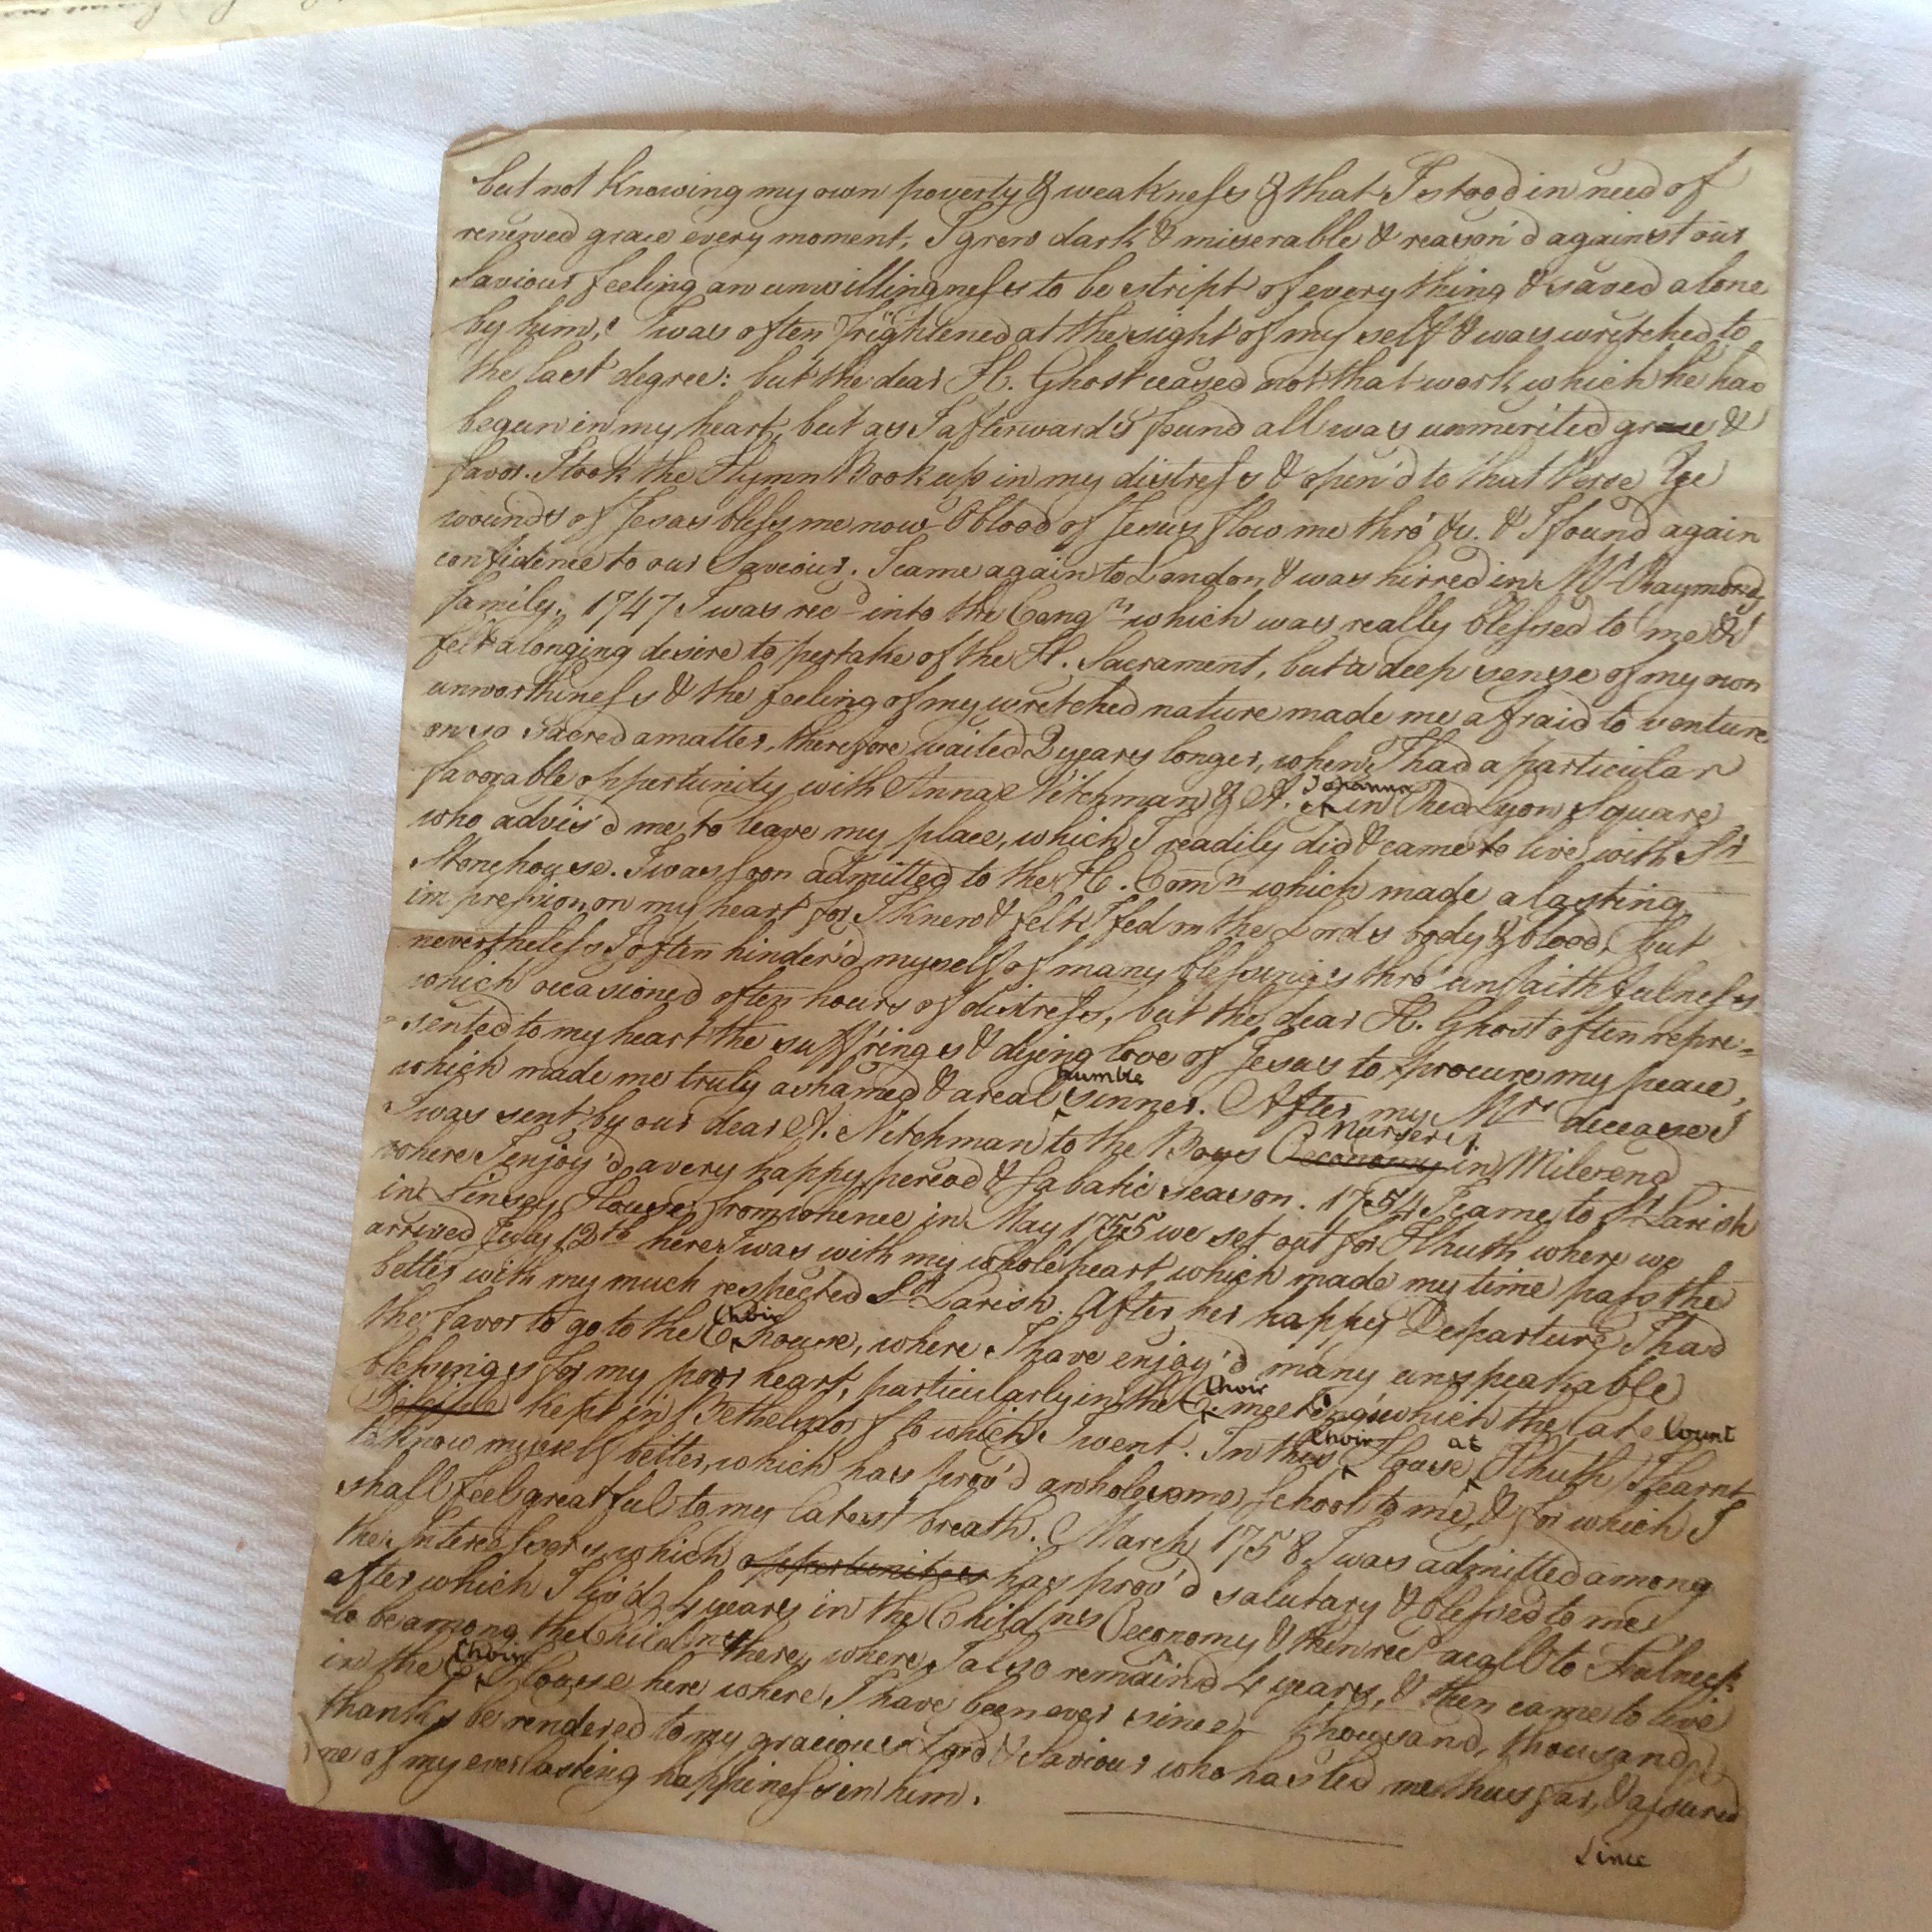 but not Knowing my own poverty & weakness & that I stood in need of
renewed grace every moment, I grew dark & misserable & reason'd against our
Saviour feeling an unwillingness to be stript of every thing & saved alone
by him, I was often frightened at the sight of my self & was wretched to
the last degree: but the dear H. Ghost ceased not that work which he had
begun in my heart, but as I afterwards found all was unmerited grace &
favor. I took the Hymn Book up in my distress & open'd to that Verse Ye
wounds of Jesus bless me now O blood of Jesus flow me thro' &c. & I found again
confidence to our Saveiour. I came again to London & was hirred in Mr Raymonds
family. 1747 I was recd into the Congn which was really blessed to me & I
felt a longing desire to pertake of the H. Sacrament, but a deep sense of my own
unworthiness & the feeling of my wretched nature made me afraid to venture
on so Sacred a matter, therefore waited 2 years longer, when I had a particular
favorable oppertunity with Anna Nitchman & A. Johanna in Red Lyon Square
who advis'd me to leave my place, which I readily did & came to live with Sr
Stonehouse. I was soon admitted to the H. Comn which made a lasting
impression on my heart for I Knew & felt I fed on the Lords body & blood, but
nevertheless I often hinder'd myself of many blessings thro' unfaithfulness
which occasioned often hours of distress, but the dear H. Ghost often repre=
=sented to my heart the suff'rings & dying love of Jesus to procure my peace,
which made me truly ashamed & a real humble sinner. After my Mrs deceased
I was sent by our dear A. Nitchman to the Boys Oeconomy Nursery in Mile end
where I enjoy'd a very happy period & sabatic season. 1754 I came to Sr Larish
in Linsey House from whence in May 1755 we set out for Hhuth where we
arrived July 12th here I was with my whole heart which made my time pass the
better with my much respected Sr Larish. After her happy Departure I had
the favor to go to the C Choir house, where I have enjoy'd many unspeakable
blessings for my poor heart, particularly in the C. Choir meetings which the late Count
kept in Bethelsdorf to which I went. In this Choir House at Hhuth I learnt
to know myself better, which has prov'd a wholesome school to me, & for which I
shall feel greatful to my latest breath. March 1758 I was admitted among
the Intercessors which oppertunities has prov'd salutary & blessed to me
after which I liv'd 4 years in the Childns Oeconomy & then recd a call to Fulneck
to be among the Children there, where I also remain'd 4 years, & then came to live
in the C Choir House here where I have been ever since, thousand, thousand
thanks be rendered to my gracious Lord & Saviour who has led me thus far, & assured
me of my everlasting happiness in him.
Since